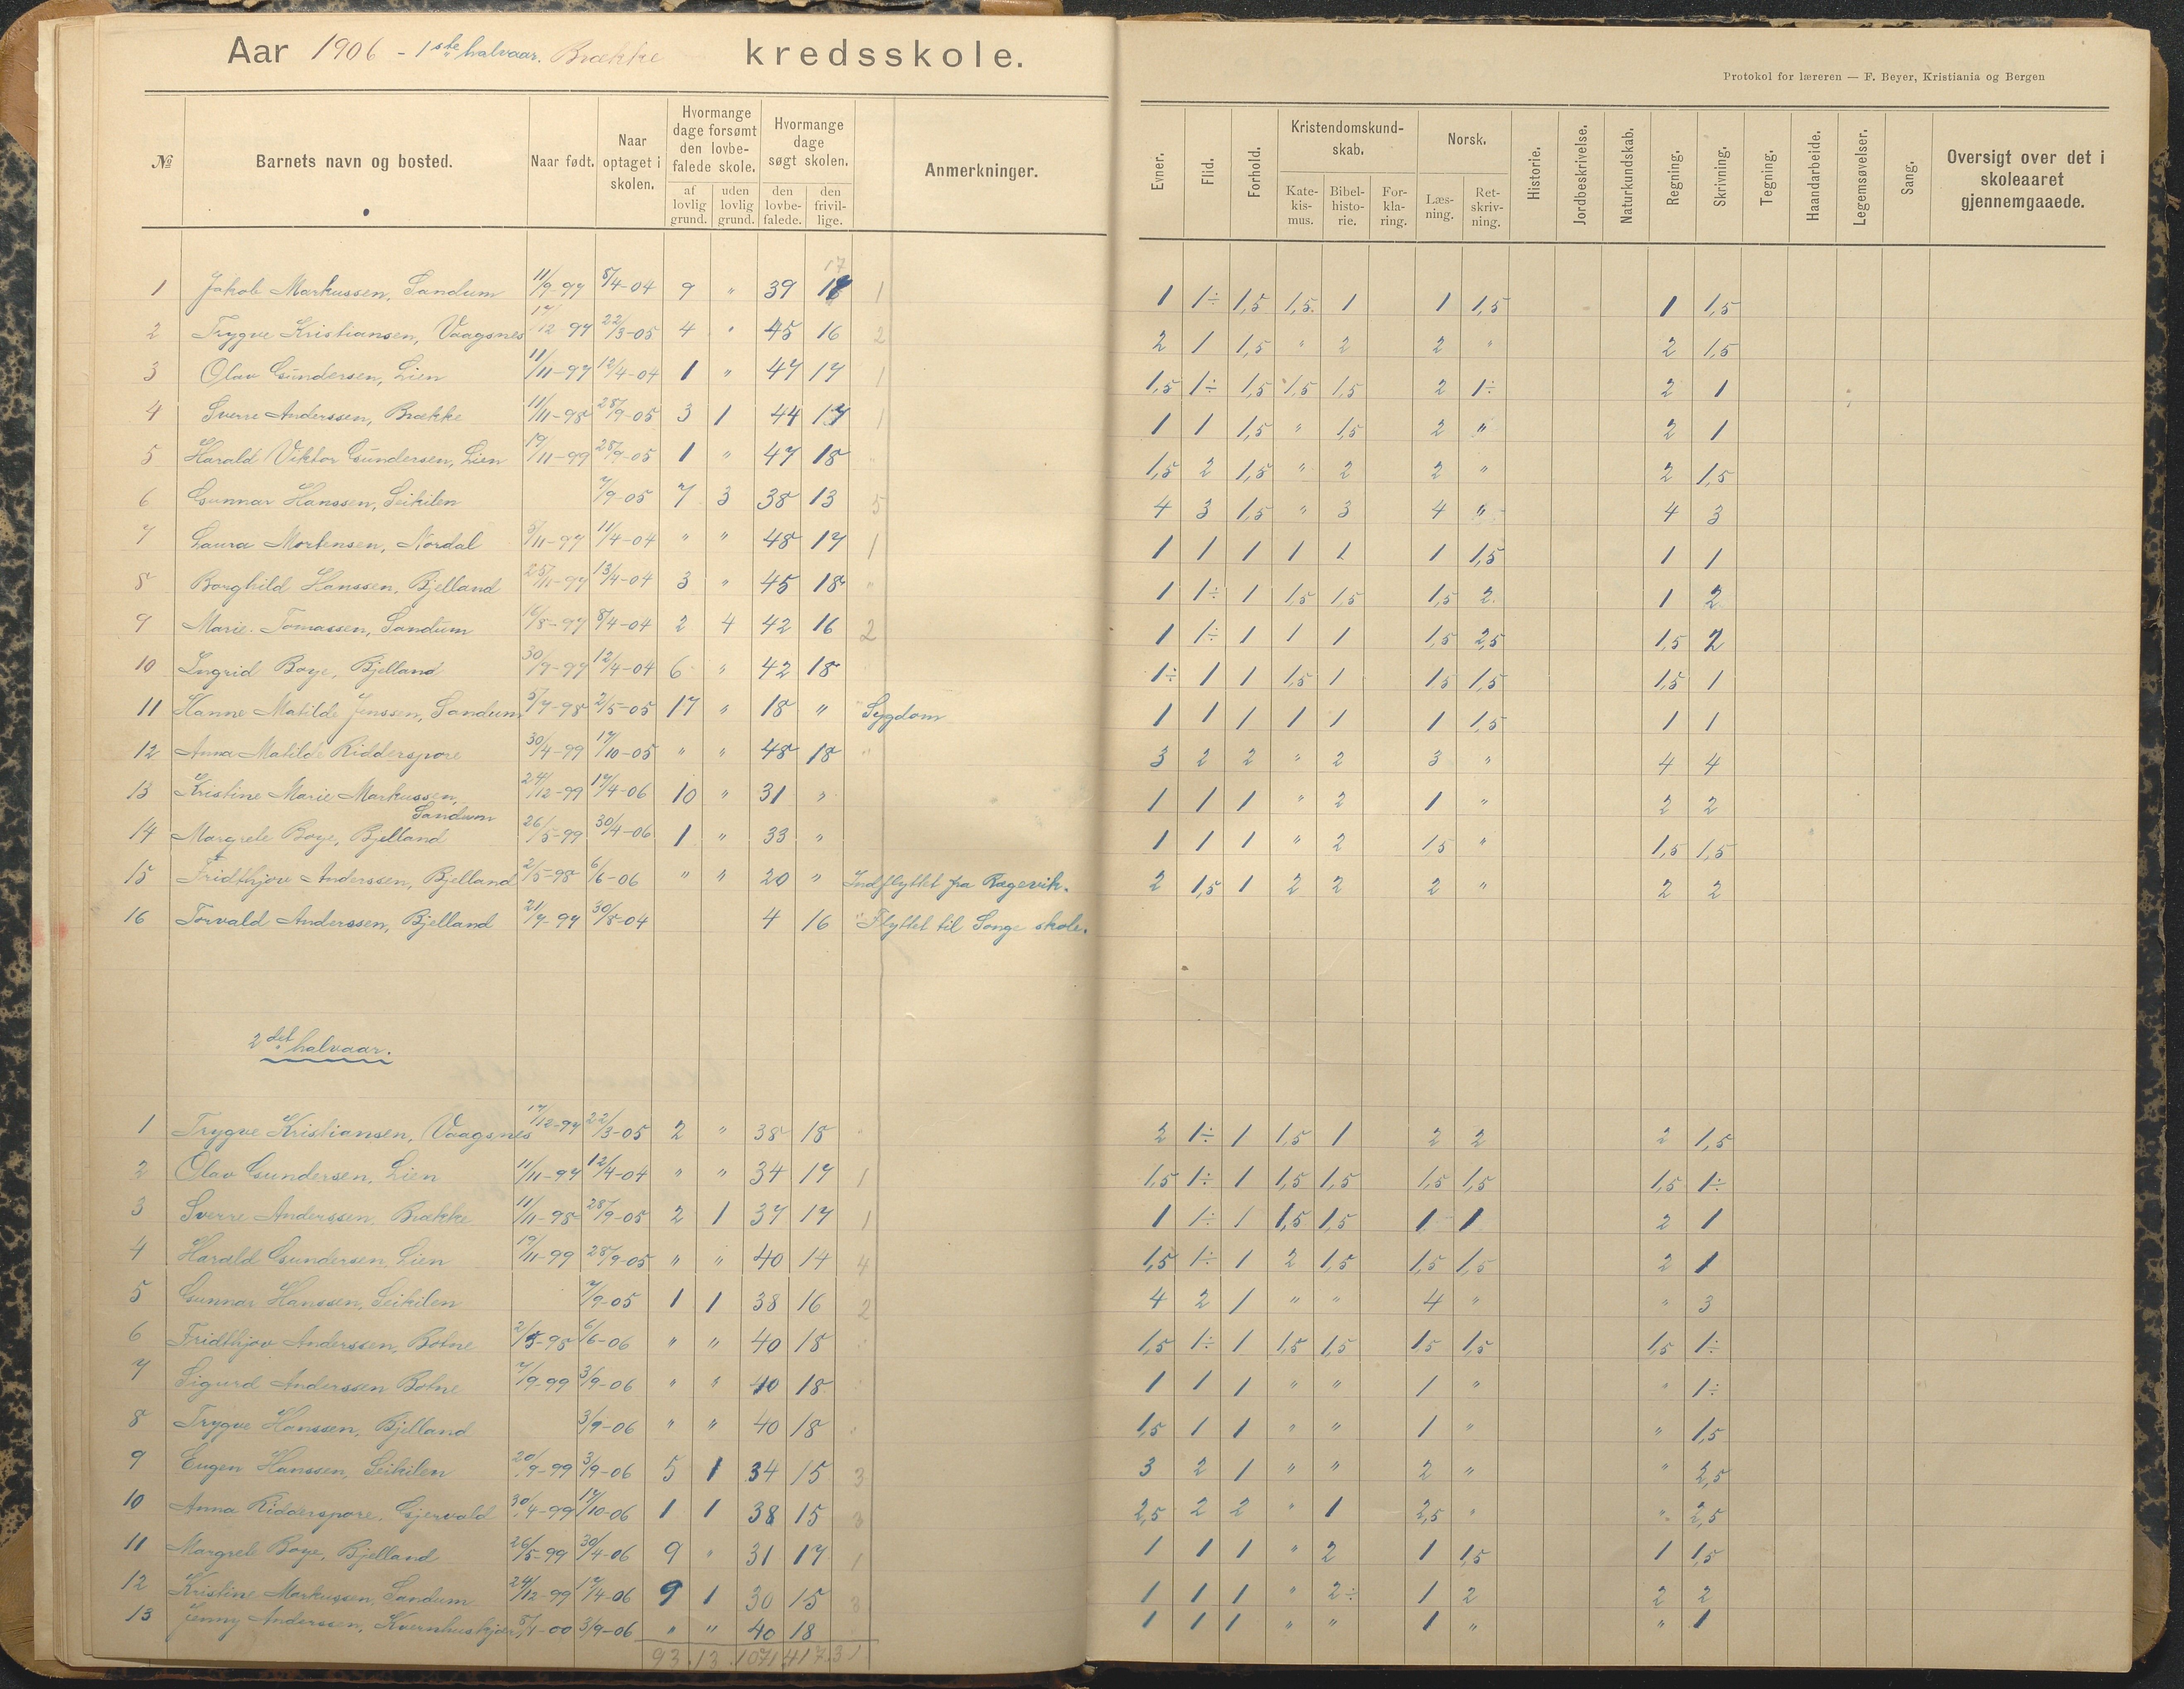 Aar 1906 - 1ste halvaar. Brække kredsskole.
Protokol for læreren — F. Beyer, Kristiania og Bergen
№ Barnets navn og bosted. Naar født. Naar optaget i skolen. Hvormange dage forsømt den lovbefalede skole. af lovlig grund. uden lovlig grund. Hvormange dage søgt skolen. den lovbefalede. den frivillige. Anmerkninger. Evner. Flid. Forhold. Kristendomskundskab. Katekismus. Bibelhistorie. Forklaring. Norsk. Læsning. Retskrivning. Historie. Jordbeskrivelse. Naturkundskab. Regning. Skrivning. Tegning. Haandarbeide. Legemsøvelser. Sang. Oversigt over det i skoleaaret gjennemgaaede.
17
1 Jakob Markussen, Sandum 11/9-97 8/4-04 9 " 39 17 1 1 1÷ 1,5 1,5 1 1 1,5 1 1,5
2 Trygve Kristiansen, Vaagsnes 17/12 97 22/3-05 4 " 45 16 2 2 1 1,5 " 2 2 " 2 1,5
3 Olav Gundersen, Lien 11/11-97 12/4-04 1 " 47 17 1 1,5 1÷ 1,5 1,5 1,5 2 1÷ 2 1
4 Sverre Anderssen, Brække 11/11-98 28/9-05 3 1 44 17 1 1 1 1,5 " 1,5 2 " 2 1
5 Harald Viktor Gundersen, Lien 19/11-99 28/9-05 1 " 47 18 " 1,5 2 1,5 " 2 2 " 2 1,5
6 Gunnar Hanssen, Leikilen 7/9-05 7 3 38 13 5 4 3 1,5 " 3 4 " 4 3
7 Laura Mortensen, Nordal 5/11-97 11/4-04 " " 48 17 1 1 1 1 1 1 1 1,5 1 1
8 Borghild Hanssen, Bjelland 25/11-97 13/4-04 3 " 45 18 " 1 1÷ 1 1,5 1,5 1,5 2 1 2
9 Marie Tomassen, Sandum 16/8-97 8/4-04 2 4 42 16 2 1 1÷ 1 1 1 1,5 2,5 1,5 2
10 Ingrid Boye, Bjelland 30/9-97 12/4-04 6 " 42 18 1÷ 1 1 1,5 1 1,5 1,5 1,5 1
11 Hanne Matilde Jenssen, Sandum 5/7-98 2/5-05 17 " 18 " " Sygdom 1 1 1 1 1 1 1,5 1 1
12 Anna Matilde Ridderspore 30/4-99 17/10-05 " " 48 18 " 3 2 2 " 2 3 " 4 4
13 Kristine Marie Markussen, 24/12-99 17/4-06 10 " 31 " 1 1 1 " 2 1 " 2 2
Sandum
14 Margrete Boye, Bjelland 26/5-99 30/4-06 1 " 33 " 1 1 1 " 2 1,5 " 1,5 1,5
15 Fridthjov Anderssen, Bjelland 2/5-98 6/6-06 " " 20 " Indflyttet fra Ragevik. 2 1,5 1 2 2 2 " 2 2
16 Torvald Anderssen, Bjelland 21/7-97 30/8-04 4 16 " Flyttet til Songe skole.
2det halvaar.
1 Trygve Kristiansen, Vaagsnes 17/12-97 22/3-05 2 " 38 18 " 2 1÷ 1 1,5 1 2 2 2 1,5
2 Olav Gundersen, Lien 11/11-97 12/4-04 " " 34 17 1 1,5 1÷ 1 1,5 1,5 1,5 1,5 1,5 1÷
3 Sverre Anderssen, Brække 11/11-98 28/9-05 2 1 37 17 1 1 1÷ 1 1,5 1,5 1 1 2 1
4 Harald Gundersen, Lien 19/11-99 28/9-05 " " 40 14 4 1,5 1÷ 1 2 1,5 1,5 1,5 2 1
5 Gunnar Hanssen, Leikilen 7/9-05 1 1 38 16 2 4 2 1 " " 4 " " 3
6 Fridthjov Anderssen, Botne 2/5-98 6/6-06 " " 40 18 " 1,5 1÷ 1 1,5 1,5 1,5 1,5 1,5 1÷
7 Sigurd Anderssen Botne 7/9-99 3/9-06 " " 40 18 " 1 1 1 " " 1 " " 1÷
8 Trygve Hanssen, Bjelland 3/9-06 " " 40 18 " 1,5 1 1 " " 1 " " 1,5
9 Eugen Hanssen, Leikilen 20/9-99 3/9-06 5 1 34 15 3 3 2 1 " " 2 " " 2,5
10 Anna Ridderspore, Gjervald 30/4-99 17/10-06 1 1 38 15 3 2,5 2 2 " 1 2,5 " " 2,5
11 Margrete Boye, Bjelland 26/5-99 30/4-06 9 " 31 17 1 1 1 1 " 2 1 1,5 1 1,5
12 Kristine Markussen, Sandum 24/12-99 17/4-06 9 1 30 15 3 1 1 1 " 2÷ 1 2 2 2
13 Jenny Anderssen, Kvernhuskjær 3/9-06 " " 40 18 1 1 1 " " 1 " " 1
93 13 1071 417 31